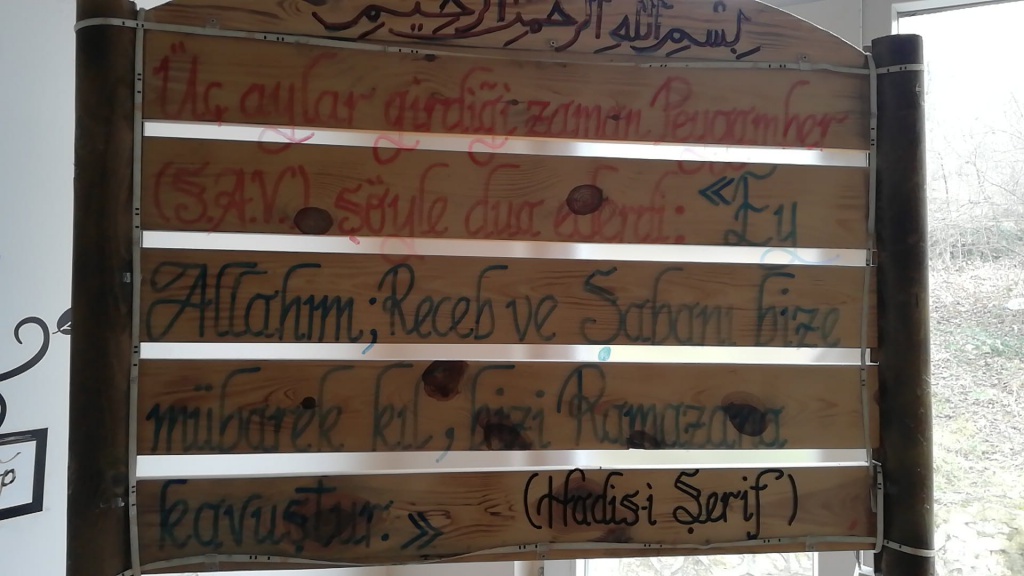 بِسْمِ اللهِ الرَّحْمٰنِ الرَّحِيمِ
Üç aylar girdiği zaman Peygamber
(S.A.V.) şöyle dua ederdi: «Ey
Allahım; Receb ve Şabanı bize
mübarek kıl, bizi Ramazana
kavuştur.»
(Hadis-i Şerif)